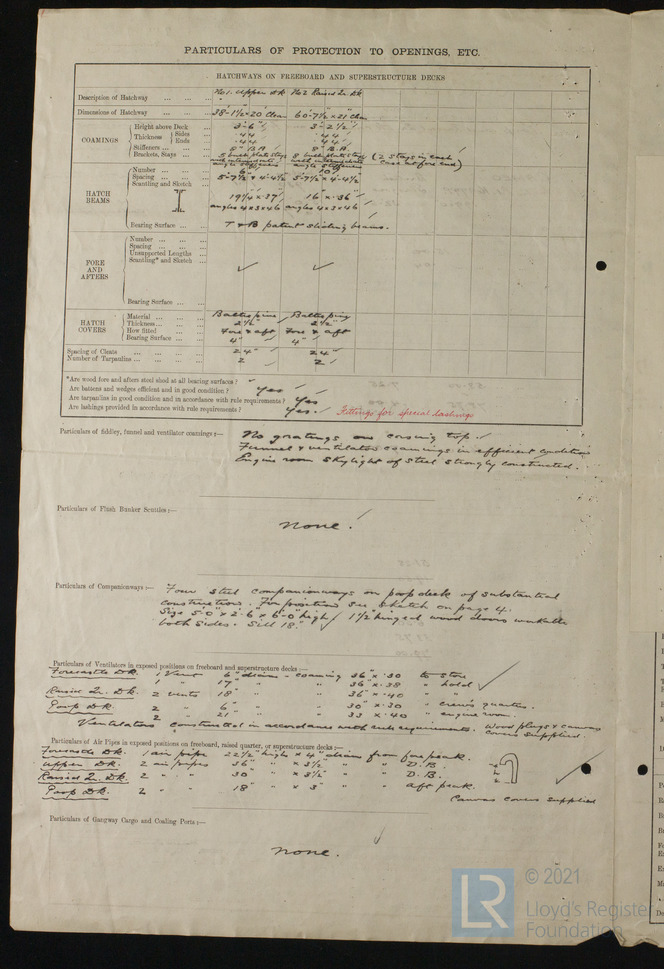 PARTICULARS OF PROTECTION TO OPENINGS, ETC.
HATCHWAYS ON FREEBOARD AND SUPERSTRUCTURE DECKS
Description of Hatchway No 1. Upper Dk No 2 Raised Qr. Dk
Dimensions of Hatchway 38'-1½" × 20' Clear 60'-7½" × 21' Clear
COAMINGS
Height above Deck 3'-6" 3'-2½"
Thickness Sides .44 .44
Ends .44 .44
Stiffeners 8" B.A. 8" B.A.
Brackets, Stays 5 bulb plate stays 8 bulb plate stays (2 stays in each
with intermediate angle stiffeners with intermediate angle stiffeners case at fore end)
HATCH BEAMS
Number 6 10
Spacing 5'-7½" & 4'-4½" 5'-7½" & 4'-4½"
Scantling and Sketch
19¼" × .37 16" × .36
angles 4 × 3 × .46 angles 4 × 3 × .46
Bearing Surface T & B patent sliding beams.
FORE AND AFTERS
Number
Spacing
Unsupported Lengths
Scantling* and Sketch
Bearing Surface
HATCH COVERS
Material Baltic pine Baltic pine
Thickness 2½" 2½"
How fitted Fore & aft Fore & aft
Bearing Surface 4" 4"
Spacing of Cleats 24" 24"
Number of Tarpaulins 2 2
*Are wood fore and afters steel shod at all bearing surfaces?
Are battens and wedges efficient and in good condition? Yes
Are tarpaulins in good condition and in accordance with rule requirements? Yes
Are lashings provided in accordance with rule requirements? Yes. Fittings for special lashings
Particulars of fiddley, funnel and ventilator coamings:— No gratings on casing top
Funnel & ventilator coamings in efficient condition
Engine room skylight of steel strongly constructed.
Particulars of Flush Bunker Scuttles:—
None.
Particulars of Companionways:— Four steel companionways on poop deck of substantial
construction. For positions see sketch on page 4.
Size 5'-0" × 2'-6" × 6'-0" high 1½" hinged wood doors workable
both sides. Sill 18"
Particulars of Ventilators in exposed positions on freeboard and superstructure decks:—
Forecastle Dk. 1 Vent 6" diam - coaming 36" × .30 to store
1 " 17" " " 36" × .38 " hold
Raised Qr. Dk. 2 vents 18" " " 36" × .40 " "
Poop Dk. 2 " 6" " " 30" × .30 " crew's quarters.
2 " 21" " " 33 × .40 " engine room.
Ventilators constructed in accordance with rule requirements. Wood plugs & canvas
covers supplied.
Particulars of Air Pipes in exposed positions on freeboard, raised quarter, or superstructure decks:—
Forecastle Dk. 1 air pipe high × 4" diam from fore peak.
Upper Dk. 2 air pipes 36" " × 3½" " " D.B.
Raised Qr. Dk. 2 " " 30" " × 3½" " " D.B.
Poop Dk. 2 " " 18" " × 3" " " aft peak.
Canvas covers supplied
Particulars of Gangway Cargo and Coaling Ports:—
None.
LR
© 2021
Lloyd's Register
Foundation